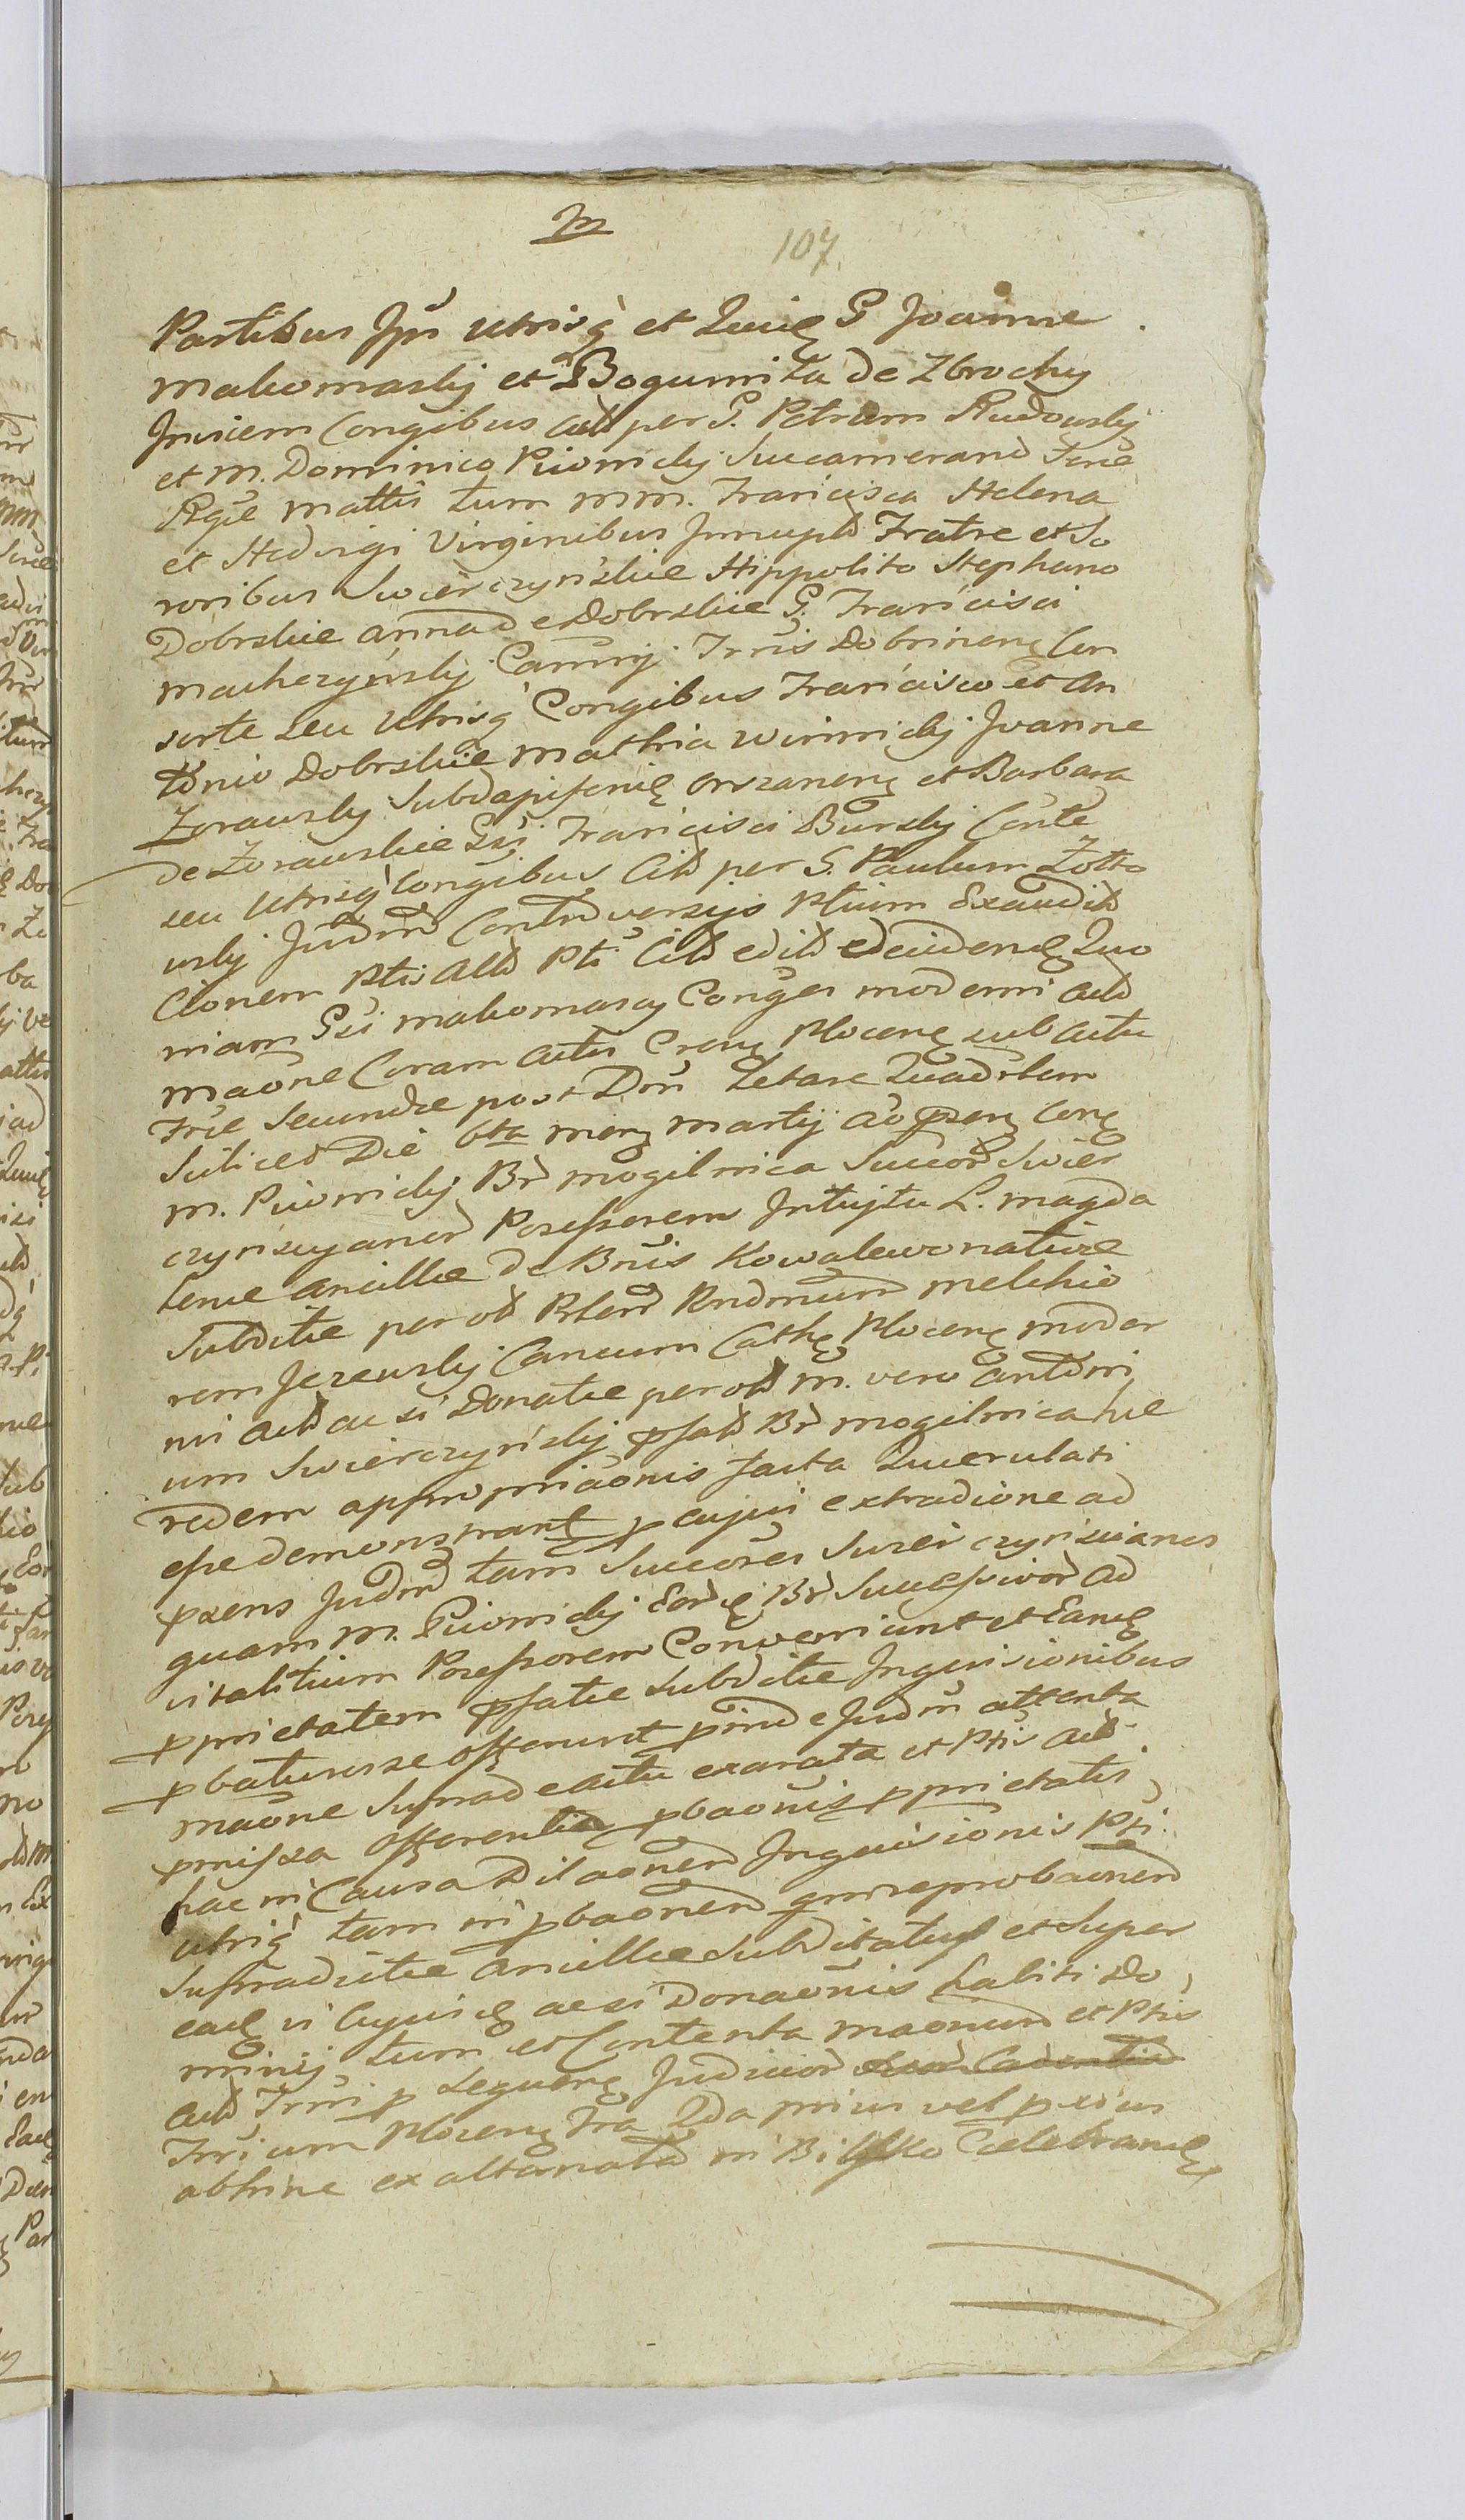 107
Partibus Ipn utrisq et Quiq G Joanne
makomaskij et Bogumiła de Zbrochy
Invicem Congibus actd per G. Petrum Rudowskij
et M. Dominico Piwnickij Succamerarid Terre
Rgie mattis tum mm. Francisca Helena
et Hedvigi Virginibus Innuptd Fratre et So
roribus Swierczynskie Hippolito Stephano
Dobrskie annad e Dobrskie G. Francisci
machczynskij Camrij Trris Dobrinenę Con
sorte seu Utrisq Congibus Francisco et An
tonio Dobrskie Mathia Winnickij Joanne
Zorawskij Subdapiferię orszanenę et Barbara
de Zorawskie Gsi Francisci Burskij Conte
seu Utrisq Congibus Citd per G. Paulum Zotto
wskij Judm Controversijs Ptium Exauditd
Cionem Ptis actd Pti Citd editd
niam Gsi makomascy Conges moderni actd
maone Coram actis Crenę Plocenę sub actu
Frie Secundæ post Dm Letare Quadrlem
Scilicet Die 6ta menę Martij ao præsenę
m. Piwnickij Br mogilnica Succor Swier
czynscyanor Possessorem Intuitu L. Magda
lene ancille de Bnis Kowalewo native
Subditie per old Rlend Rndmum Melchio
rem Jezewskij Cancum Cathę Plocenę moder
ni actd ac si Donatæ per old M. vero Antoni
um Swierczynskij psatd Br mogilnica hæ
redem appropriaonis facta Querulati
esse demonstranę p cujus extradione ad
pxens Judm tam Succores Swierczynscianos
quam M. Piwnickij Eorq Br Successivor ad
vitalitium Possessorem Conveniunt et Eamq
pprietatem psatæ subditie Inquisionibus
pbaturos se offerunt pinde Judm attenta
maone Suprad e actu exarata et Ptis actd
pmissa offerentia pbaonis pprietatis
hac in Causa Dilaonem Inquisionis Pti
utriq tam in pbaonem qm reprobaonem
Supradicte ancille Subditatus et super
eadę si Cujusq ac si Donaonis habiti Do
minij, tum et Contenta maonum et Ptis
actd Trri p sequenę Judicior
Trrium Plocenę Fra 2da prius vel pxius
abhinc ex alternata in Bielsko Celebrandę